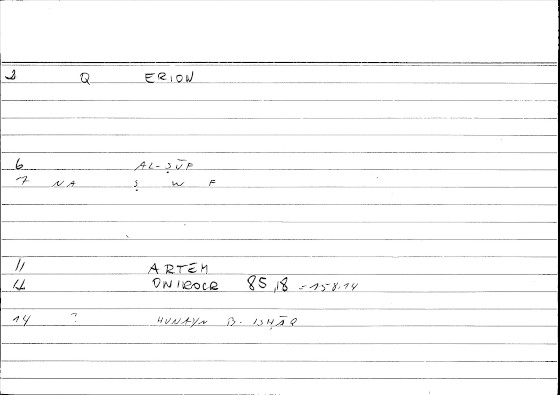 2 Q ERION
6 AL-ṢŪF
7 NA Ṣ W F
11 ARTEM
ONIROCR 85,18 = 158.14
14 ? ḤUNAYN B. ISḤĀQ